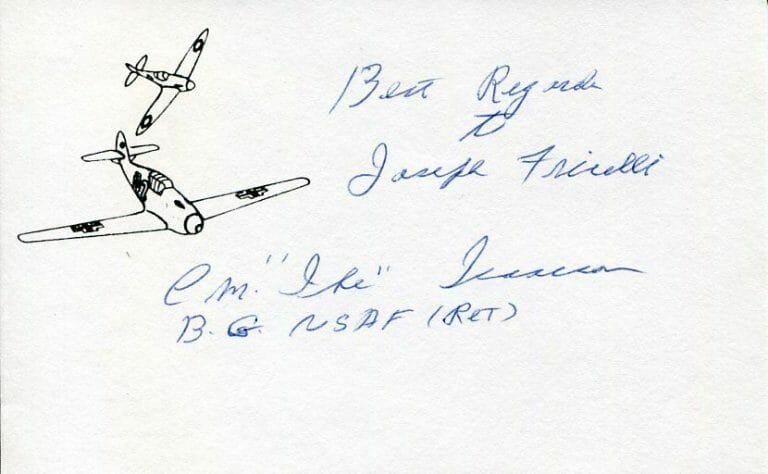 Best Regards
to
Joseph Fricelli
C M. "Ike" Isaacson
B. G. USAF (RET)